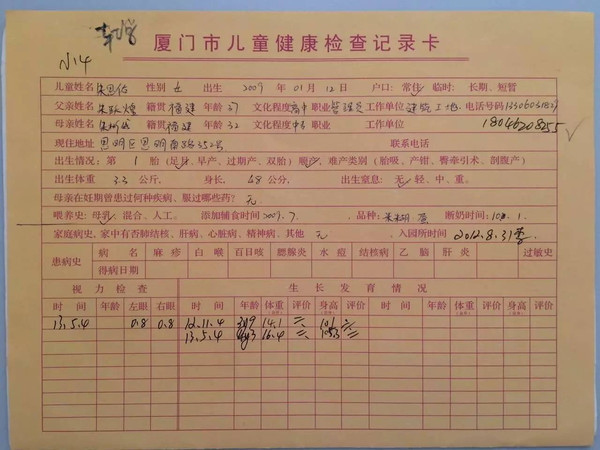 N14
厦门市儿童健康检查记录卡
儿童姓名 朱思佑 性别 女 出生 2009 年 01 月 12 日 户口: 常住 临时: 长期、短暂
父亲姓名 朱 籍贯 福建 年龄 37 文化程度 高中 职业 管理员 工作单位 建筑工地 电话号码
母亲姓名 籍贯 福建 年龄 32 文化程度 中专 职业 工作单位 18046208255
现住地址 思明区思明南路352号 联系电话
出生情况: 第 1 胎 (足月、早产、过期产、双胎) 顺产、难产类别 (胎吸、产钳、臀牵引术、剖腹产)
出生体重 3.3 公斤, 身长, 48 公分, 出生窒息: 无 轻、中、重。
母亲在妊期曾患过何种疾病、服过哪些药? 无
喂养史: 母乳、混合、人工。 添加辅食时间 2009.7. , 品种: 米糊 断奶时间:
家庭病史, 家中有否肺结核、肝病、心脏病、精神病、其他 无 , 入园所时间 2012.8.31
患病史 病名 麻疹 白喉 百日咳 腮腺炎 水痘 结核病 乙脑 肝炎 过敏史
得病日期
视力检查 生长发育情况
时间 年龄 左眼 右眼 时间 年龄 体重 评价 身高 评价 时间 年龄 体重 评价 身高 评价
13.5.4 0.8 0.8 12.11.4 3y9 14.1 三 101 三
13.5.4 4y3 16.4 三